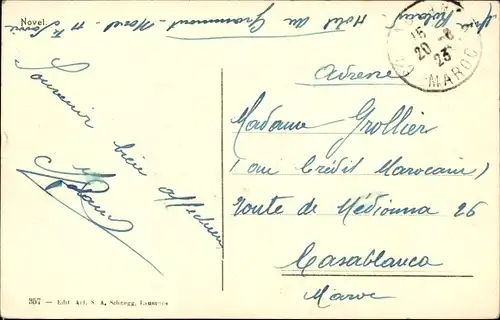 Novel.
Hotel du Grammont - Novel - Hte Savoie
15
20-8
23
MAROC
Souvenir
bien affectueux
Adresse
Madame Grollier
(au Crédit Marocain)
Route de Médiouna 26
Casablanca
Maroc
357 - Edit Art. S. A. Schnegg, Lausanne